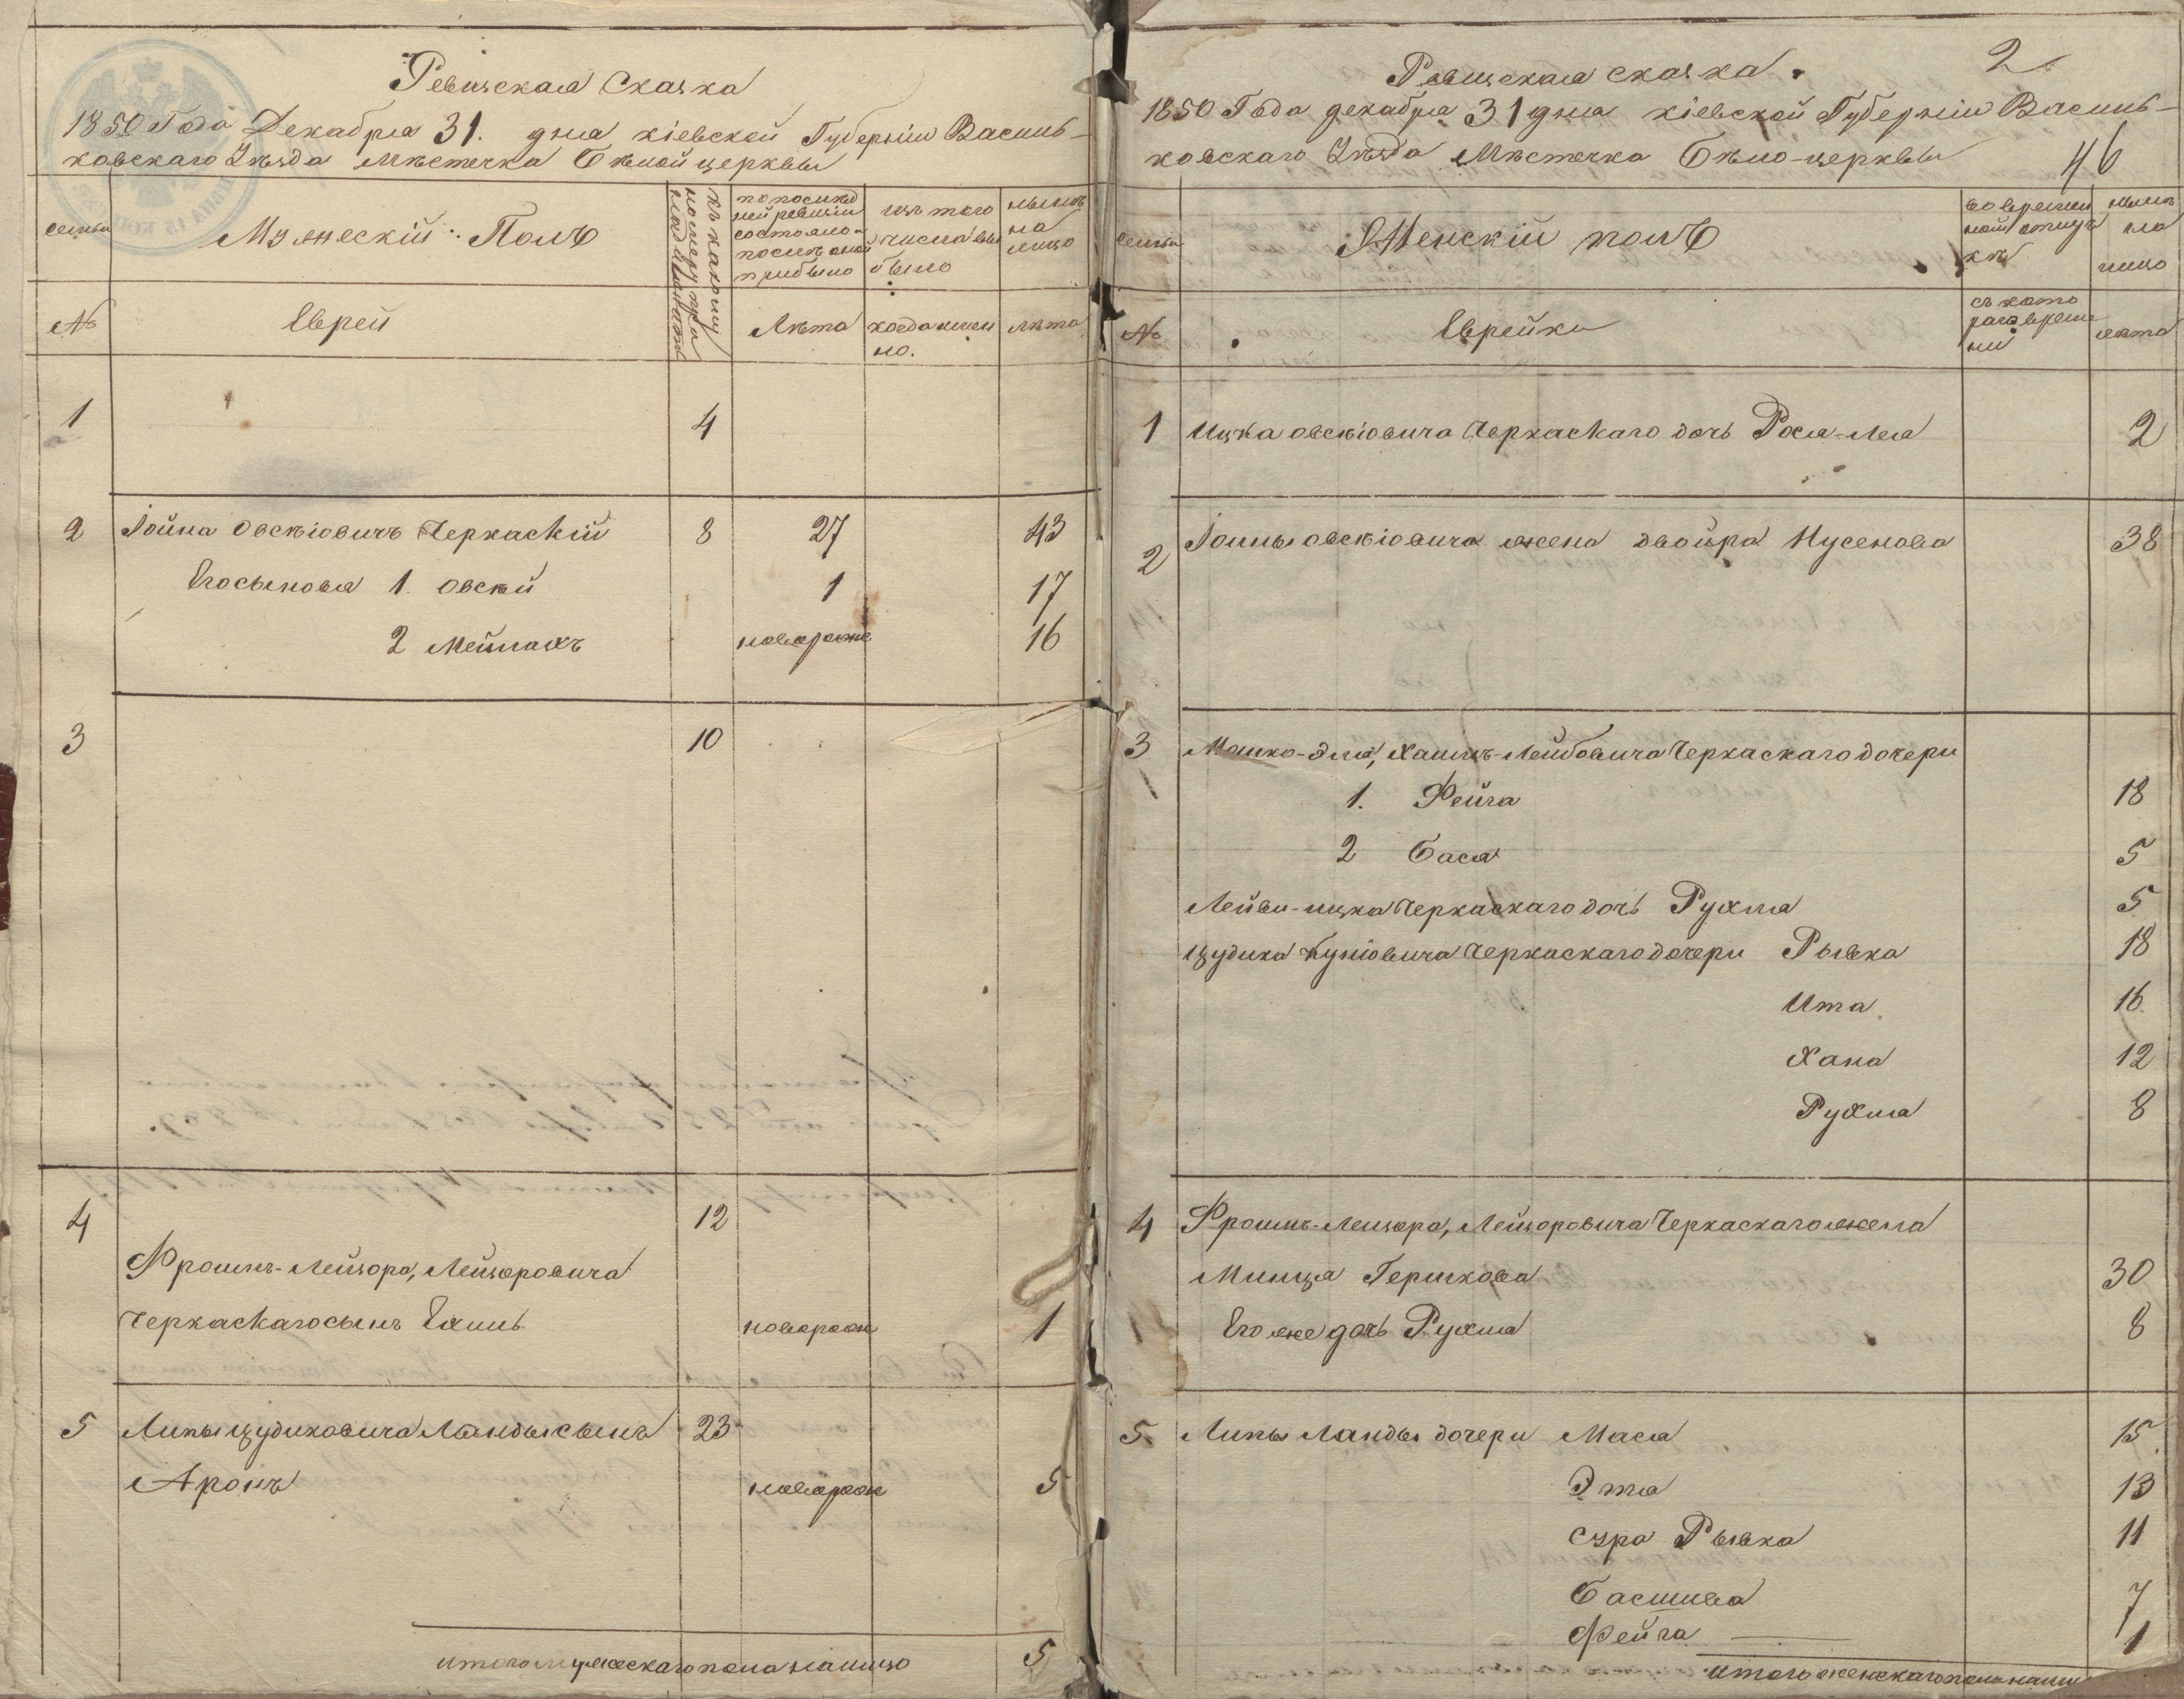 Ревизская Сказка
1850 Года Декабря 31. дня кіевской Губерніи Василь-
ковскаго Уѣзда Мѣстечка Бѣлой церквы
семьи
Мужескій Полъ
къ какому
номеру при
надлежатъ
по послѣд
ней ревизіи
состояло и
послѣ оной
прибыло
изъ того
числа выбы
было
нынѣ
на
лицо
№
Еврей
Лѣта
когда имен
но.
лѣта
1 4
2 Іойна Овсѣіовичъ Черкаскій 8 27 43
Его сыновья 1. Овсѣй 1 17
2 Мейлахъ новорожд 16
3 10
4 12
Фроимъ-Лейзора, Лейзоровича
Черкаскаго сынъ Ехиль новорож 1
5 Липы Зудиковича Ланды сынъ 23
Аронъ новорож 5
итого мужескаго пола налицо 5
Ревизская сказка. 2
1850 Года декабря 31 дня кіевской Губерніи Василь-
ковскаго Уѣзда Мѣстечка Бѣло-церквы 46
семьи
Женскій полъ
во времен
ной отлуч
кѣ
нынѣ
на
лицо
№
Еврейки
съ кото
раго време
ни
лѣта
1 Ицка Овсѣіовича Черкаскаго дочь Рося-Лея 2
2 Іойны Овсѣіовича жена Двойра Нусенова 38
3 Мошко-Эля, Хаимъ-Лейбовича Черкаскаго дочери
1. Фейга 18
2 Бася 5
Лейви-ицка Черкаскаго дочь Рухля 5
Зудика Куніовича Черкаскаго дочери Рывка 18
Ита 16
Хана 12
Рухля 8
4 Фроимъ-Лейзора, Лейзоровича Черкаскаго жена
Минця Гершкова 30
Его же дочь Рухля 8
5. Липы Ланды дочери Мася 15
Этя 13
Сура Рывка 11
Басшива 7
Фейга 1
итого женскаго пола нали